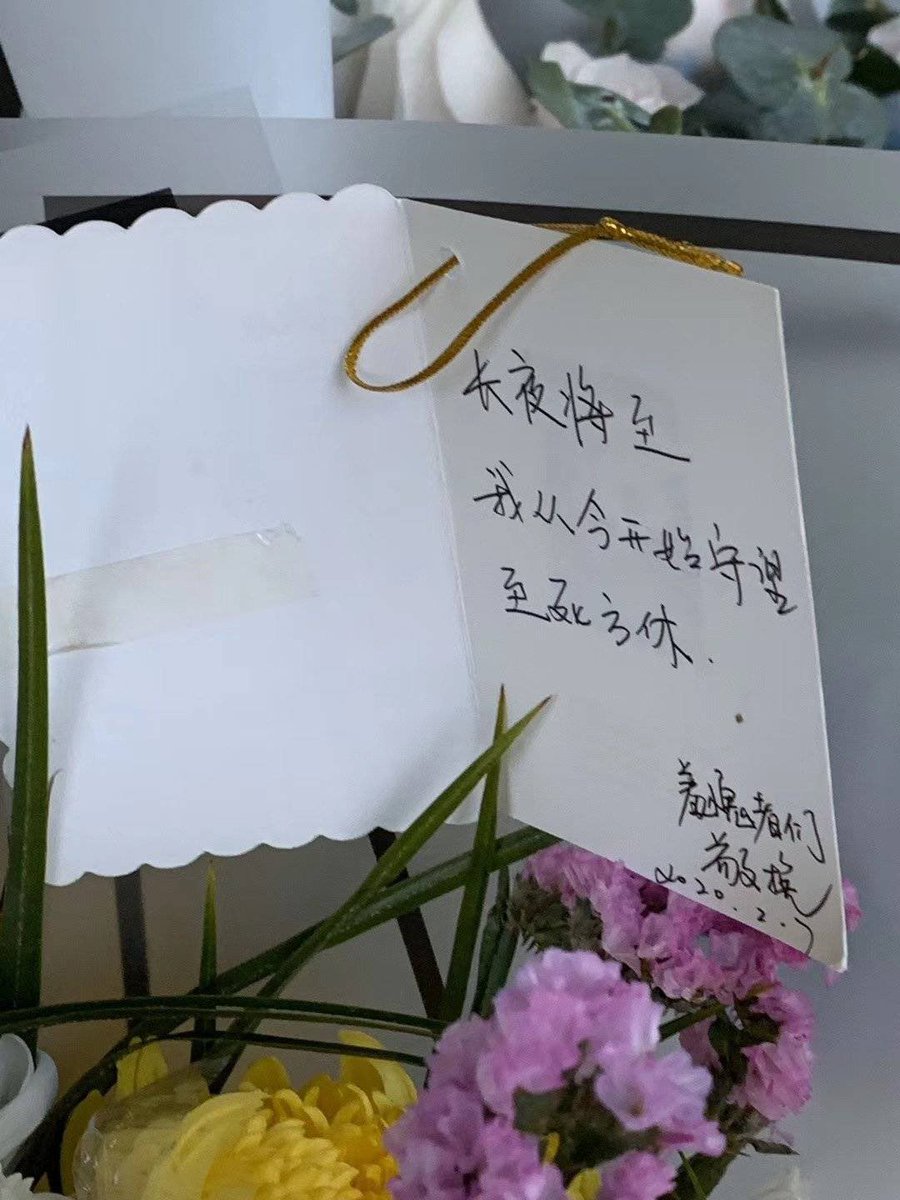 长夜将至
我从今开始守望
至死方休.
羞愧者们
敬挽
2020.2.7